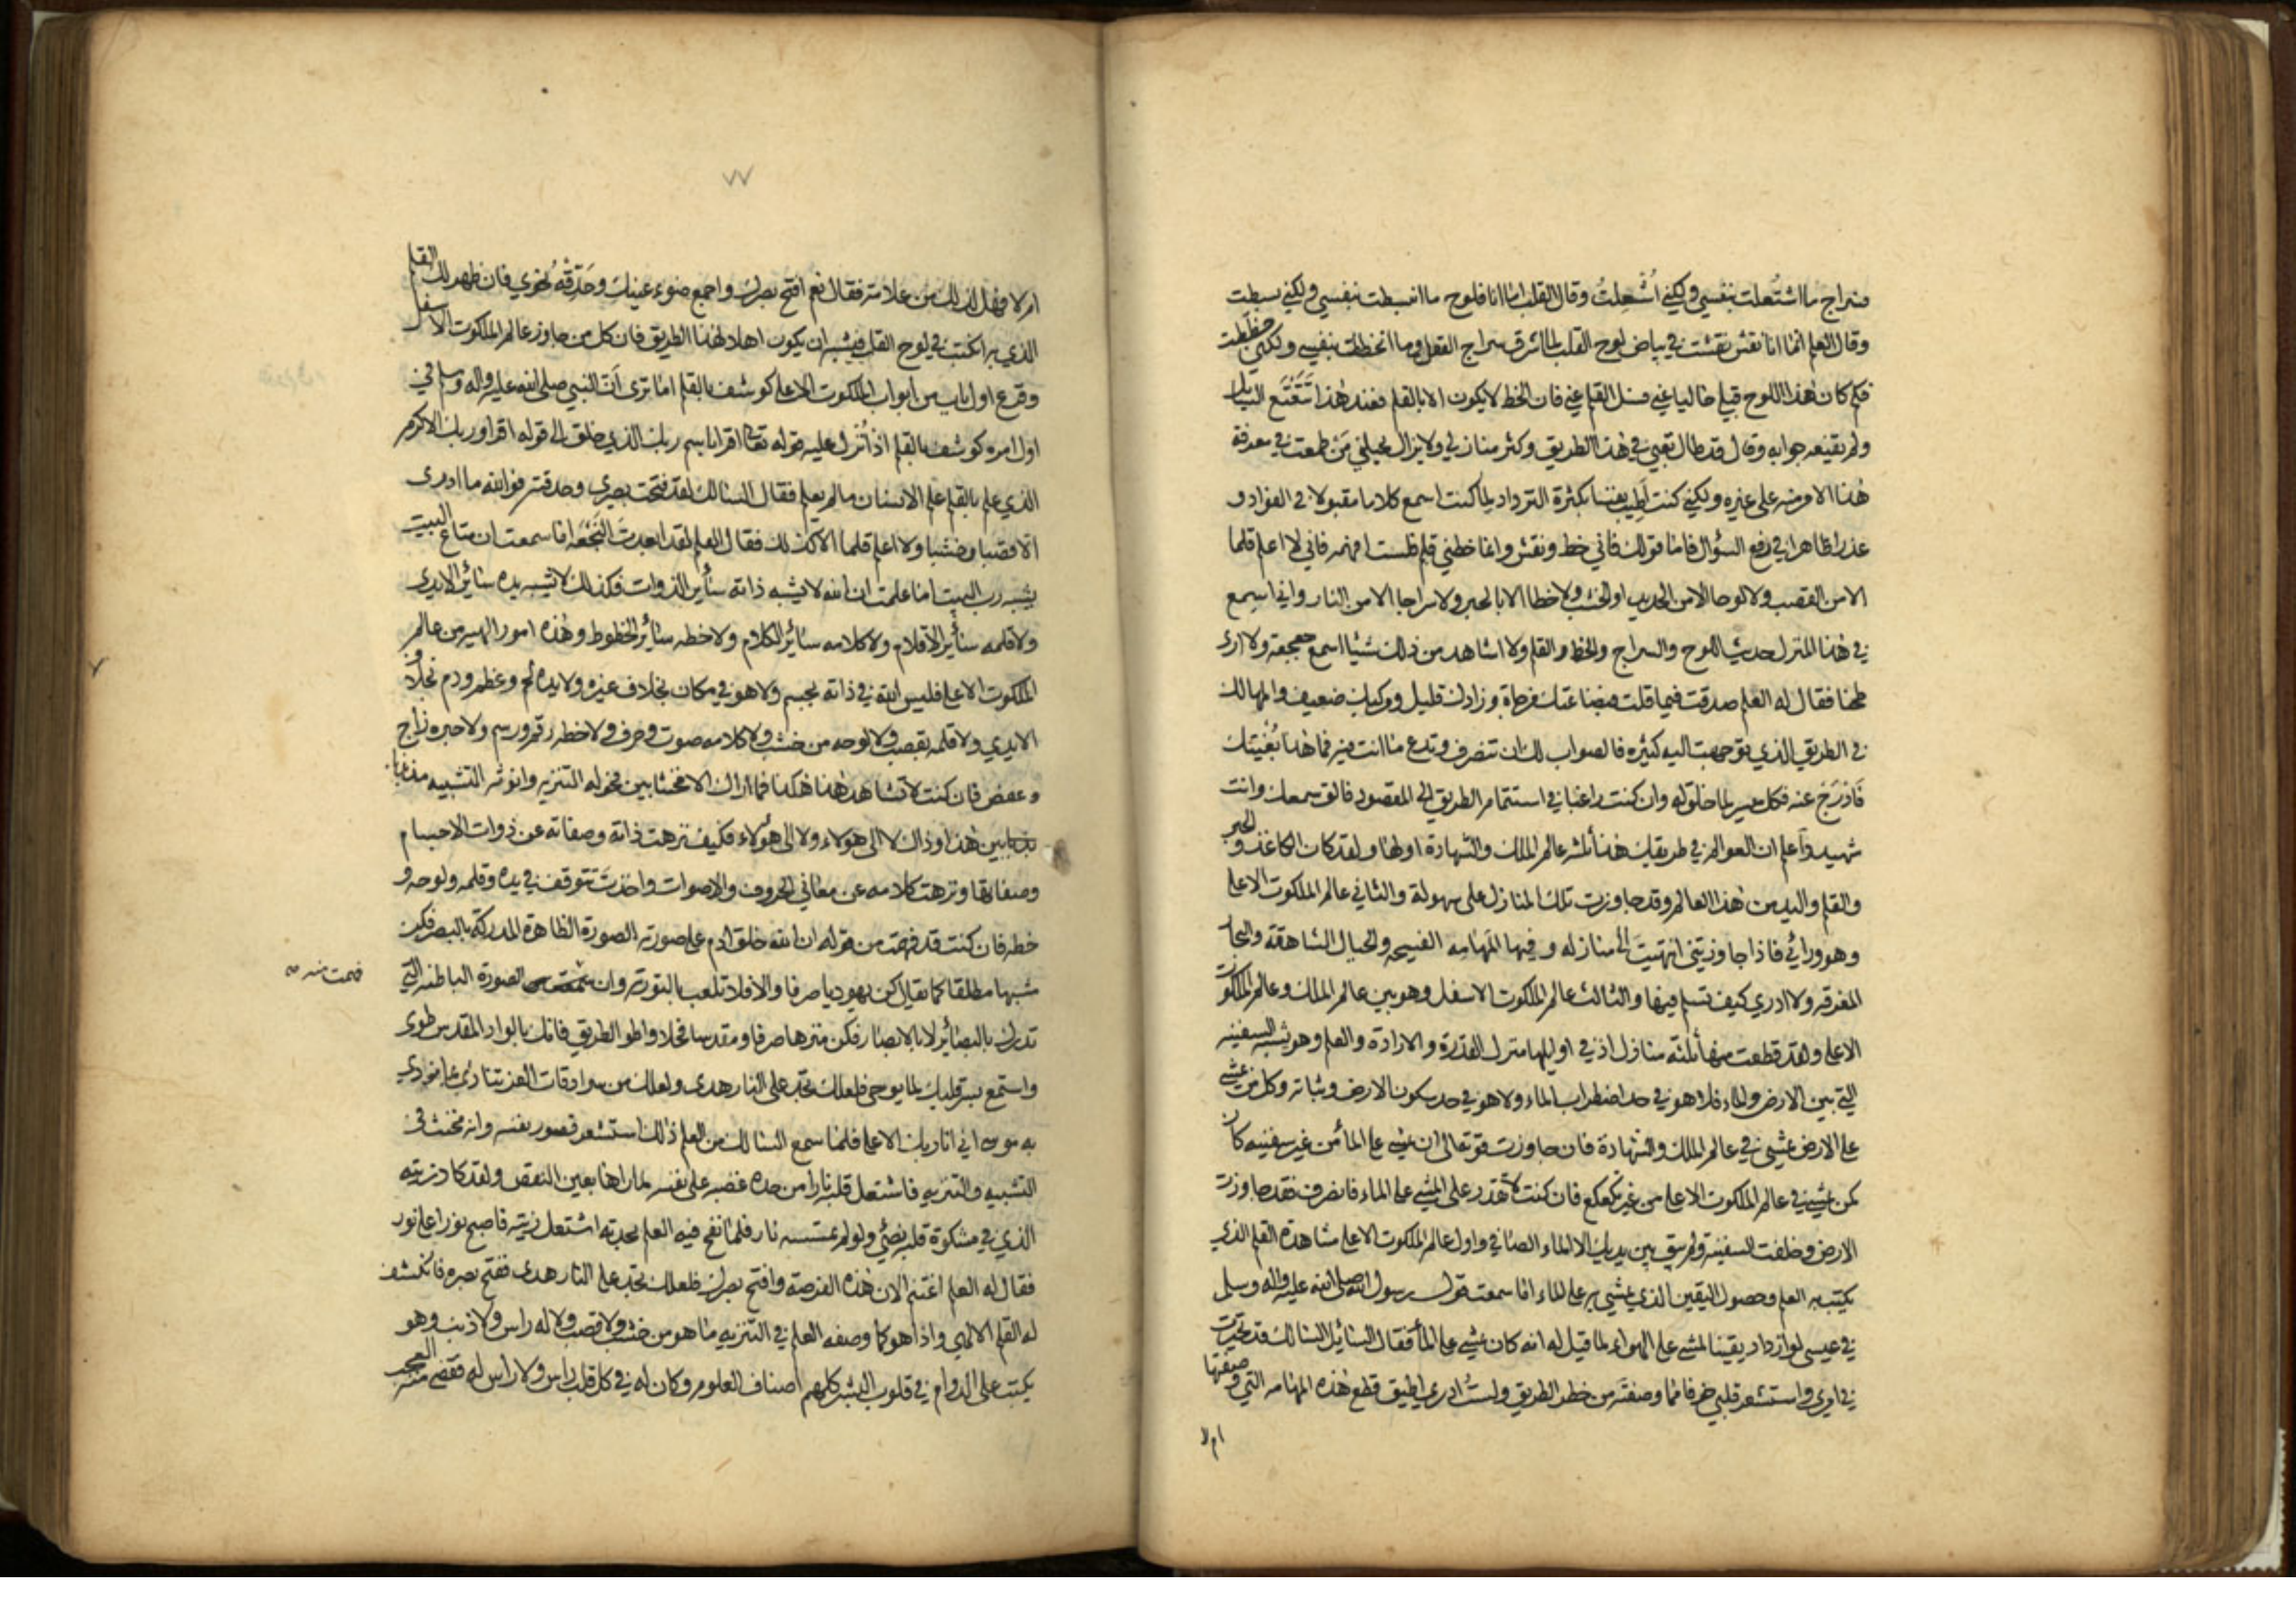 فسراج ما اشتعلت بنفسي ولكني اُشعِلتُ وقال القلب اما انا فلوح ما انبسطت بنفسي ولكني بسطت
وقال العلم انما انا نقش نقشت في بياض لوح القلب لما اشرق سراج العقل وما انخططت بنفسي ولكني خططت
فكم كان هذا اللوح قبلي خاليا عني فسل القلم عني فان الخط لا يكون الا بالقلم فعند هذا تتعتع السائل
ولم يقنعه جوابه وقال قد طال تعبي في هذا الطريق وكثر منازلي ولا يزال يحيلني مَن طمعت في معرفة
هذا الامر منه على غيره ولكني كنت اَطيب نفسا بكثرة الترداد لما كنت اسمع كلاما مقبولا في الفؤاد و
عذرا ظاهرا في دفع السؤال فاما قولك فاني خط ونقش وانما خطني قلم فلست افهمه فاني لا اعلم قلما
الا من القصب ولا لوحا الا من الحديد او الخشب ولا خطا الا بالحبر ولا سراجا الا من النار واني اسمع
في هذا المنزل حديث اللوح والسراج والخط والقلم ولا اشاهد من ذلك شيئا اسمع جعجعة ولا ارى
طحنا فقال له العلم صدقت فيما قلت فبضاعتك مزجاة وزادك قليل ومركبك ضعيف والمهالك
في الطريق الذي توجهت اليه كثيره فالصواب لك ان تنصرف وتدع ما انت فيه فما هذا بُغْيتك
فَادْرَجْ عنه فكل ميسر لما خلق له وان كنت راغبا في استتمام الطريق الى المقصود فالق سمعك وانت
شهيد واعلم ان العوالم في طريقك هذا ثلثه عالم الملك والشهادة اولها ولقد كان الكاغذ والحبر
والقلم واليد من هذا العالم وقد جاوزت تلك المنازل على سهولة والثاني عالم الملكوت الاعلى
وهو ورائي فاذا جاوزتني انتهيتَ الى منازله وفيها المَهامِه الفسيحه والجبال الشاهقة والبحار
المغرقه ولا ادري كيف تسلم فيها والثالث عالم الملكوت الاسفل وهو بين عالم الملك وعالم الملكوت
الاعلى ولقد قطعت منها ثلثه منازل اذ في اوليها منزل القدرة والارادة والعلم وهو يشبه السفينه
التي بين الارض والماء فلا هو في حد اضطراب الماء ولا هو في حد سكون الارض وثباته وكل من يمشي
على الارض يمشي في عالم الملك والشهادة فان جاوزت قوته الى ان يمشي على الماء من غير سفينه كان
كمن يمشي في عالم الملكوت الاعلى من غير تكعكع فان كنت لا تقدر على المشي على الماء فانصرف فقد جاوزت
الارض وخلفت السفينه ولم يبق بين يديك الا الماء الصافي واول عالم الملكوت الاعلى مشاهدة القلم الذي
يكتب به العلم وحصول اليقين الذي يمشي به على الماء اما سمعت قول رسول الله صلى الله عليه واله وسلم
في عيسى لو ازداد يقينا لمشى على الهواء لما قيل له انه كان يمشي على الماء فقال السائل السالك قد تحيرت
في امري واستشعر قلبي خوفا مما وصفته من خطر الطريق ولستُ ادري اطيق قطع هذه المهامه التي وصفتها
ام لا
٧٧
ام لا فهل لذلك من علامة فقال نعم افتح بصرك واجمع ضوء عينيك وحَدِّقْهُ نحوي فان ظهر لك القلم
الذي به اكتب في لوح القلب فيشبه ان يكون اهلا لهذا الطريق فان كل من جاوز عالم الملكوت الاسفل
وقرع اول باب من ابواب الملكوت الاعلى كوشف بالقلم اما ترى اَنّ النبي صلى الله عليه واله وسلم في
اول امره كوشف بالقلم اذ اُنزل عليه قوله تعالى اقرا باسم ربك الذي خلق الى قوله اقرا وربك الاكرم
الذي علم بالقلم علم الانسان مالم يعلم فقال السالك لقد فتحت بصري وحدقته فوالله ما ادري
الا قصبا وخشبا ولا اعلم قلما الا كذلك فقال العلم لقد ابعدت النُجْعَه اما سمعت ان متاع البيت
يشبه رب البيت اما علمت ان الله لا يشبه ذاته سائر الذوات فكذلك لا يشبه يده سائر الايدي
ولا قلمه سائر الاقلام ولا كلامه سائر الكلام ولا خطه سائر الخطوط وهذه امور الهيه من عالم
الملكوت الاعلى فليس الله في ذاته بجسم ولا هو في مكان بخلاف غيره ولا يده لحم وعظم ودم بخلاف
الايدي ولا قلمه بقصب ولا لوحه من خشب ولا كلامه صوت وحرف ولا خطه رقم ورسم ولا حبره زاج
وعفص فان كنت لا تشاهد هذا هكذا فما اراك الا مخنثا بين فحولة التنزيه وانوثه التشبيه مذبذبا
بين هذا وذاك لا الى هولاء ولا الى هولاء فكيف نزهت ذاته وصفاته عن ذوات الاجسام
وصفاتها ونزهت كلامه عن معاني الحروف والاصوات واخذتَ تتوقف في يده وقلمه ولوحه و
خطه فان كنت قد فهمت من قوله ان الله خلق ادم على صورته الصورة الظاهرة المدركة بالبصر فكن
مشبها مطلقا كما يقال كن يهوديا صرفا والا فلا تلعب بالتورته وان الصورة الباطنه التي
فهمت منه صح
تدرك بالبصائر لا بالابصار فكن منزها صرفا ومقدسا فحلا واطو الطريق فانك بالواد المقدس طوى
واستمع بسر قلبك لما يوحى فلعلك تجد على النار هدى ولعلك من سرادقات العز تنادى بما نودي
به موسى اني انا ربك الاعلى فلما سمع السالك من العلم ذلك استشعر قصور نفسه وانه مخنث في
التشبيه والتنزيه فاشتعل قلبه نارا من حدة غضبه على نفسه لما راها بعين النقص ولقد كاد زيته
الذي في مشكوة قلبه يضئ ولو لم تمسسه نار فلما نفخ فيه العلم بحدته اشتعل زيته فاصبح نورا على نور
فقال له العلم اغتنم الان هذه الفرصة وافتح بصرك فلعلك تجد على النار هدى ففتح بصره فانكشف
له القلم الالهي واذا هو كما وصفه العلم في التنزيه ما هو من خشب ولا قصب ولا له راس ولا ذنب وهو
يكتب على الدوام في قلوب البشر كلهم اصناف العلوم وكان له في كل قلب راس ولا راس له فقضى منه العجب